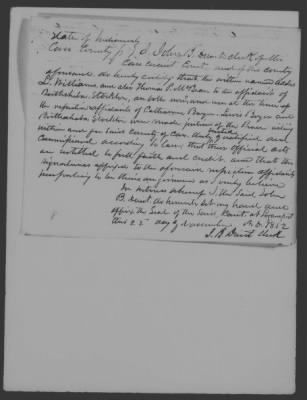 State of Indiana
Cass County } I John B. Dent clerk of the
Cass circuit Court and of the county
aforesaid do hereby certify that the within named
L. Williams, and also Thomas P. McBean to the affidavit of
Bathsheba Stockton, on both were, and were at the time of
the respective affidavits of Catharine Boyer, Lewis Boyer and
Bathsheba Stockton were made justices of the Peace
within and for said County of Cass duly qualified and
Commissioned according to law, that their official acts
are entitled to full faith and credit, and that the
signatures affixed to the aforesaid respective affidavits
purporting to be theirs are genuine as I verily believe
In witness whereof I the said John
B. Dent do hereunto set my hand and
affix the Seal of the said Court at Logansport
this 22nd day of November A.D. 1852
J. B. Dent Clerk